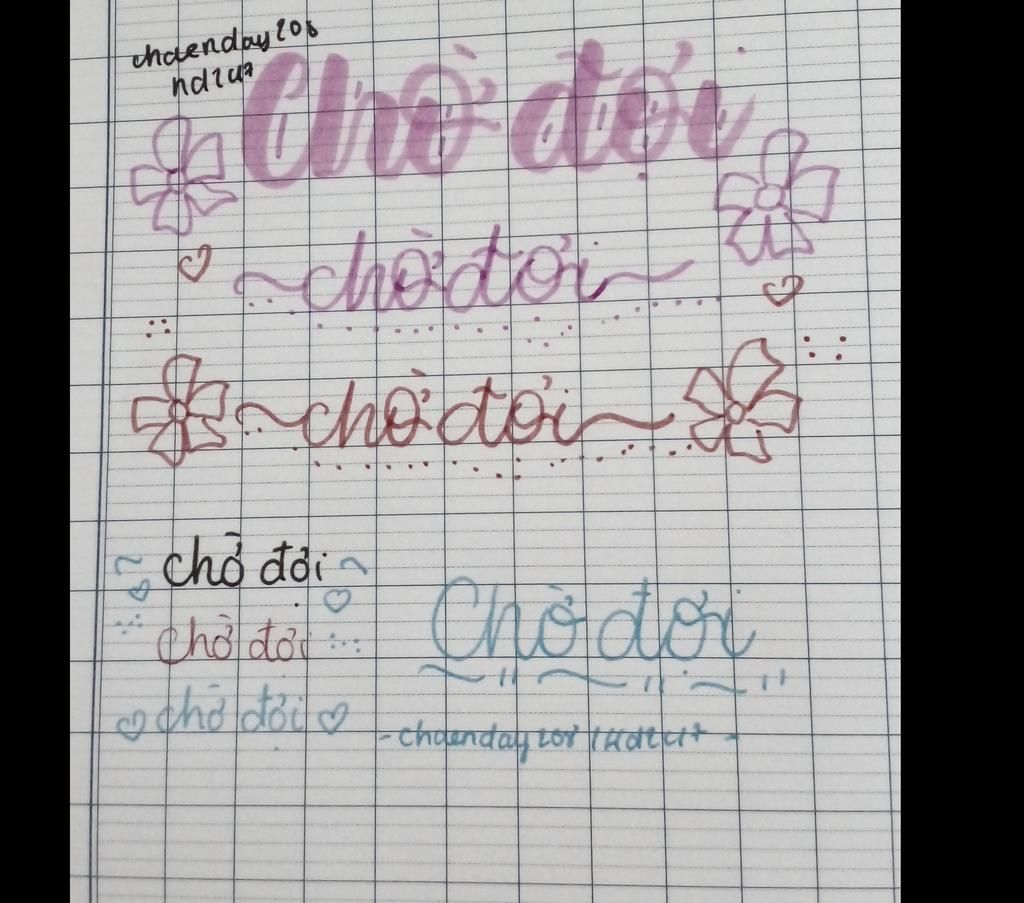 chaenday208
Chờ đợi
chờ đợi
chờ đợi
chờ đợi
Chờ đợi
chờ đợi
chờ đợi
-chaenday208